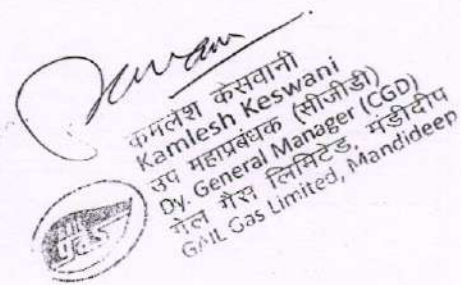 कमलेश केसवानी
Kamlesh Keswani
उप महाप्रबंधक (सीजीडी)
Dy. General Manager (CGD)
गेल गैस लिमिटेड, मंडीदीप
GAIL Gas Limited, Mandideep
gas